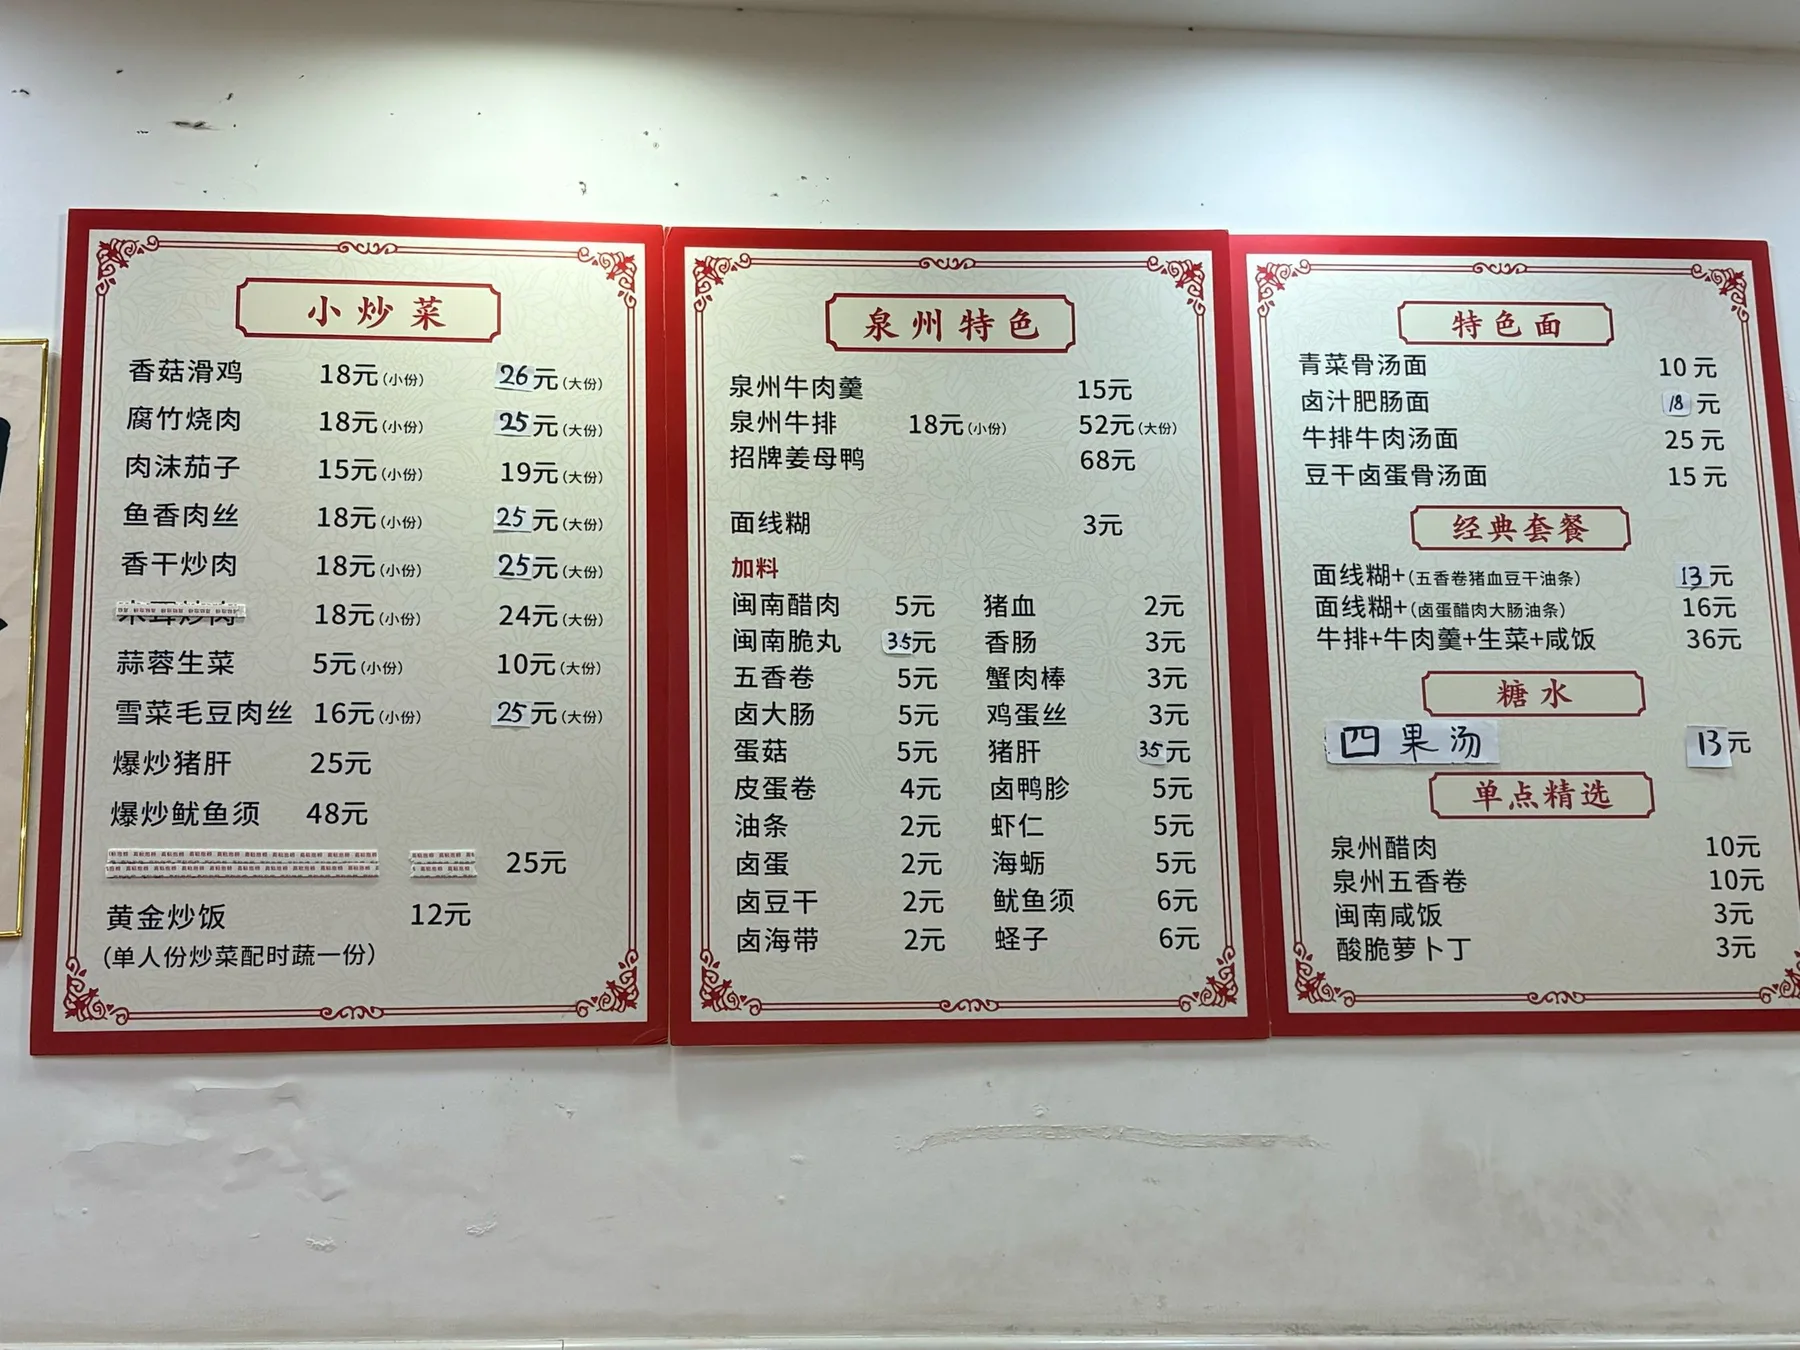 小炒菜
香菇滑鸡 18元(小份) 26元(大份)
腐竹烧肉 18元(小份) 25元(大份)
肉沫茄子 15元(小份) 19元(大份)
鱼香肉丝 18元(小份) 25元(大份)
香干炒肉 18元(小份) 25元(大份)
18元(小份) 24元(大份)
蒜蓉生菜 5元(小份) 10元(大份)
雪菜毛豆肉丝 16元(小份) 25元(大份)
爆炒猪肝 25元
爆炒鱿鱼须 48元
25元
黄金炒饭 12元
(单人份炒菜配时蔬一份)
泉州特色
泉州牛肉羹 15元
泉州牛排 18元(小份) 52元(大份)
招牌姜母鸭 68元
面线糊 3元
加料
闽南醋肉 5元 猪血 2元
闽南脆丸 3.5元 香肠 3元
五香卷 5元 蟹肉棒 3元
卤大肠 5元 鸡蛋丝 3元
蛋菇 5元 猪肝 3.5元
皮蛋卷 4元 卤鸭胗 5元
油条 2元 虾仁 5元
卤蛋 2元 海蛎 5元
卤豆干 2元 鱿鱼须 6元
卤海带 2元 蛏子 6元
特色面
青菜骨汤面 10元
卤汁肥肠面 18元
牛排牛肉汤面 25元
豆干卤蛋骨汤面 15元
经典套餐
面线糊+(五香卷猪血豆干油条) 13元
面线糊+(卤蛋醋肉大肠油条) 16元
牛排+牛肉羹+生菜+咸饭 36元
糖水
四果汤 13元
单点精选
泉州醋肉 10元
泉州五香卷 10元
闽南咸饭 3元
酸脆萝卜丁 3元